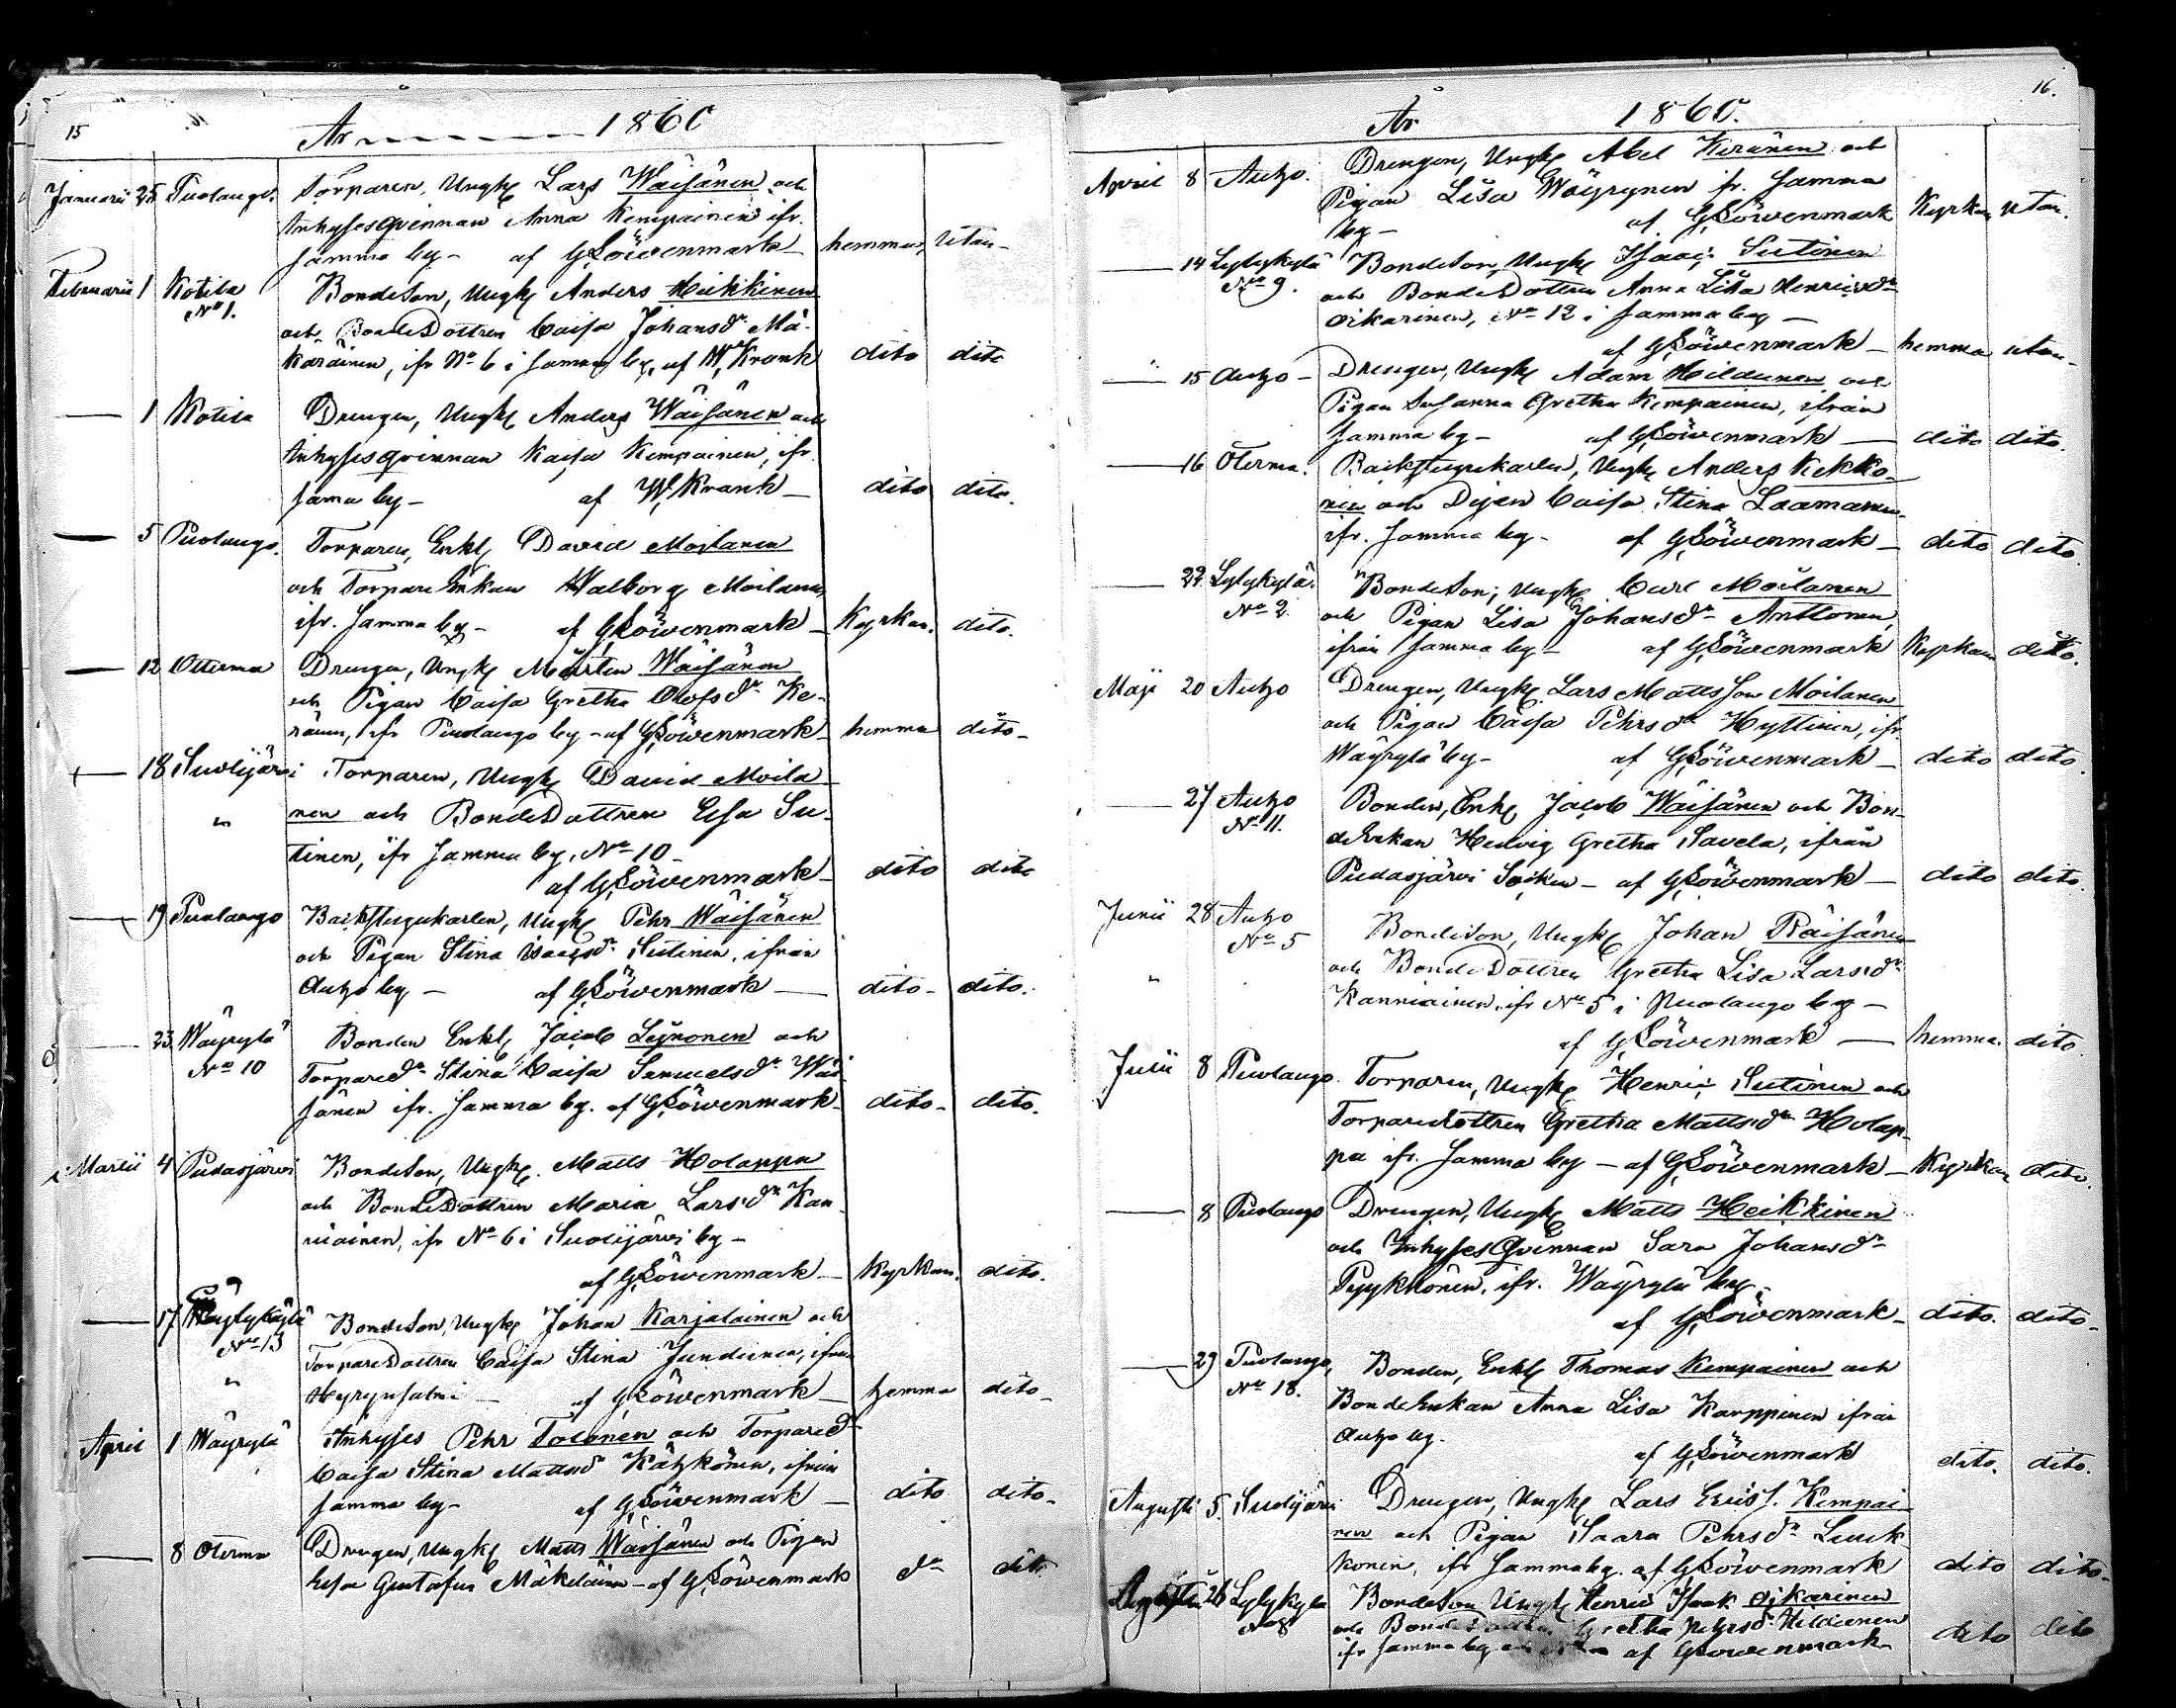 15
År 1860
Januarii 25 Puolango. Torparen, Ungk. Lars Wäisänen och
Inhysesqvinnan Anna Kempainen ifr.
samma by - af G Löwenmark - hemma, utan -
Februarii 1 Kotila Bondeson, Ungk. Anders Heikkinen
No 1. och BondeDottren Caisa Johansdr Mä-
käräinen, ifr No 6 i samma by, af W. Krank dito dito
1 Kotila Drengen, Ungk. Anders Wäisänen och
Inhysesqvinnan Kaisa Kempainen, ifr.
sama by - af W. Krank - dito dito.
5 Puolango. Torparen, Enkl. David Moilanen
och TorpareEnkan Walborg Moilanen
ifr. samma by - af G Löwenmark - Kyrkan. dito.
12 Otterma Drengen, Ungk. Mårten Wäisänen
och Pigan Caisa Gretha Olofsdr Ke-
ränen, ifr Puolango by - af G Löwenmark - hemma dito -
18 Suolijärvi Torparen, Ungk. David Moila
nen och BondeDottren Elsa Su-
tinen, ifr samma by, No 10 -
af G Löwenmark - dito dito
19 Puolango Backstugukarlen, Ungk. Pehr Wäisänen
och Pigan Stina Isacsdr Sutinen, ifrån
Autjo by - af G Löwenmark - dito - dito.
23 Wäyrylä Bonden Enkl. Jacob Leinonen och
No 10 Torparedr Stina Caisa Samuelsdr Wäi
sänen ifr. samma by. af G Löwenmark - dito - dito.
Martii 4 Pudasjärvi Bondeson, Ungk. Matts Holappa
och BondeDottren Maria Larsdr Kan
niainen, ifr No 6 i Suolijärvi by -
af G Löwenmark - Kyrkan. dito.
17 Bondeson, Ungk. Johan Karjalainen och
No 13 TorpareDottren Caisa Stina Juntunen, ifrån
Hyrynsalmi - af G Löwenmark - hemma dito -
April 1 Wäyrylä Inhyses Pehr Tolonen och Torparedr
Caisa Stina Mattsdr Kätkönen, ifrån
samma by - af G Löwenmark - dito dito -
8 Oterma Drengen, Ungk. Matts Wäisänen och Pigan
Elsa Gustafva Mäkeläinen - af G Löwenmark do dito
16.
År 1860.
April 8 Autjo. Drengen, Ungk. Abel Keränen och
Pigan Lisa Wäyrynen ifr. samma
by - af G Löwenmark Kyrkan utan.
14 Lylykylä Bondeson, Ungk. Isaac Sutinen
No 9. och BondeDottren Anna Lisa Henricsdr
Oikarinen, No 12 i samma by -
af G Löwenmark - hemma utan -
15 Autjo - Drengen, Ungk. Adam Hiltunen och
Pigan Susanna Gretha Kempainen, ifrån
samma by - af G Löwenmark - dito dito.
16 Oterma. Backstugukarlen, Ungk. Anders Kekko-
nen och Dejan Caisa Stina Laamanen
ifr. samma by - af G Löwenmark - dito dito.
22. Lylykylä. Bondeson, Ungk. Carl Moilanen
No 2. och Pigan Lisa Johansdr Anttonen,
ifrån samma by - af G Löwenmark Kyrkan dito.
Maji 20 Autjo Drengen, Ungk. Lars Mattsson Moilanen
och Pigan Caisa Pehrsdr Hyttinen, ifr.
Wäyrylä by - af G Löwenmark - dito dito.
27 Autjo Bonden, Enkl. Jacob Wäisänen och Bon-
No 11. deEnkan Hedvig Gretha Savela, ifrån
Pudasjärvi Socken - af G Löwenmark - dito dito.
Junii 28 Autjo Bondeson, Ungk. Johan Räisänen
No 5 och BondeDottren Gretha Lisa Larsdr
Kanniainen. ifr No 5 i Puolango by -
af G Löwenmark - hemma. dito.
Julii 8 Puolango. Torparen, Ungk. Henric Sutinen och
TorpareDottren Gretha Mattsdr Holap-
pa ifr. samma by - af G Löwenmark - Kyrkan dito.
8 Puolango Drengen, Ungk. Matts Heikkinen
och InhysesQvinnan Sara Johansdr
Pyykkönen. ifr. Wäyrylä by -
af G Löwenmark - dito. dito -
29 Puolango, Bonden, Enkl. Thomas Kempainen och
No 18. BondeEnkan Anna Lisa Karppinen ifrån
Autjo by. af G Löwenmark dito. dito.
Augusti 5. Suolijärvi Drengen, Ungk. Lars Ericss. Kempai
nen och Pigan Saara Pehrsdr Luuk
konen, ifr samma by. af G Löwenmark dito dito -
Augusti 26 Lylykylä Bondeson Ungk Henric Isaak Oikarinen
No 8 och BondeDottren Gretha Pehrsdr Hiltunen
ifr samma by af G Löwenmark - dito dito